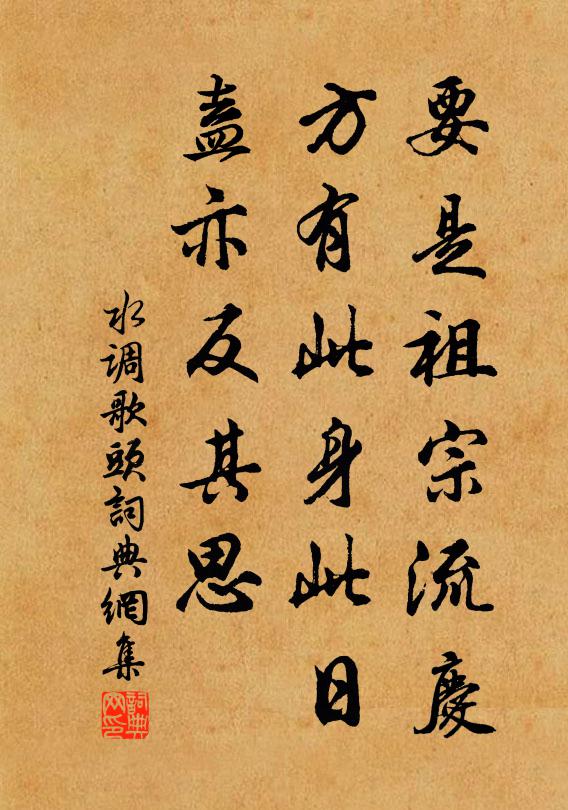 要是祖宗流慶
方有此身此日
盍亦反其思
水调歌頭詞典網集
詞典
网印